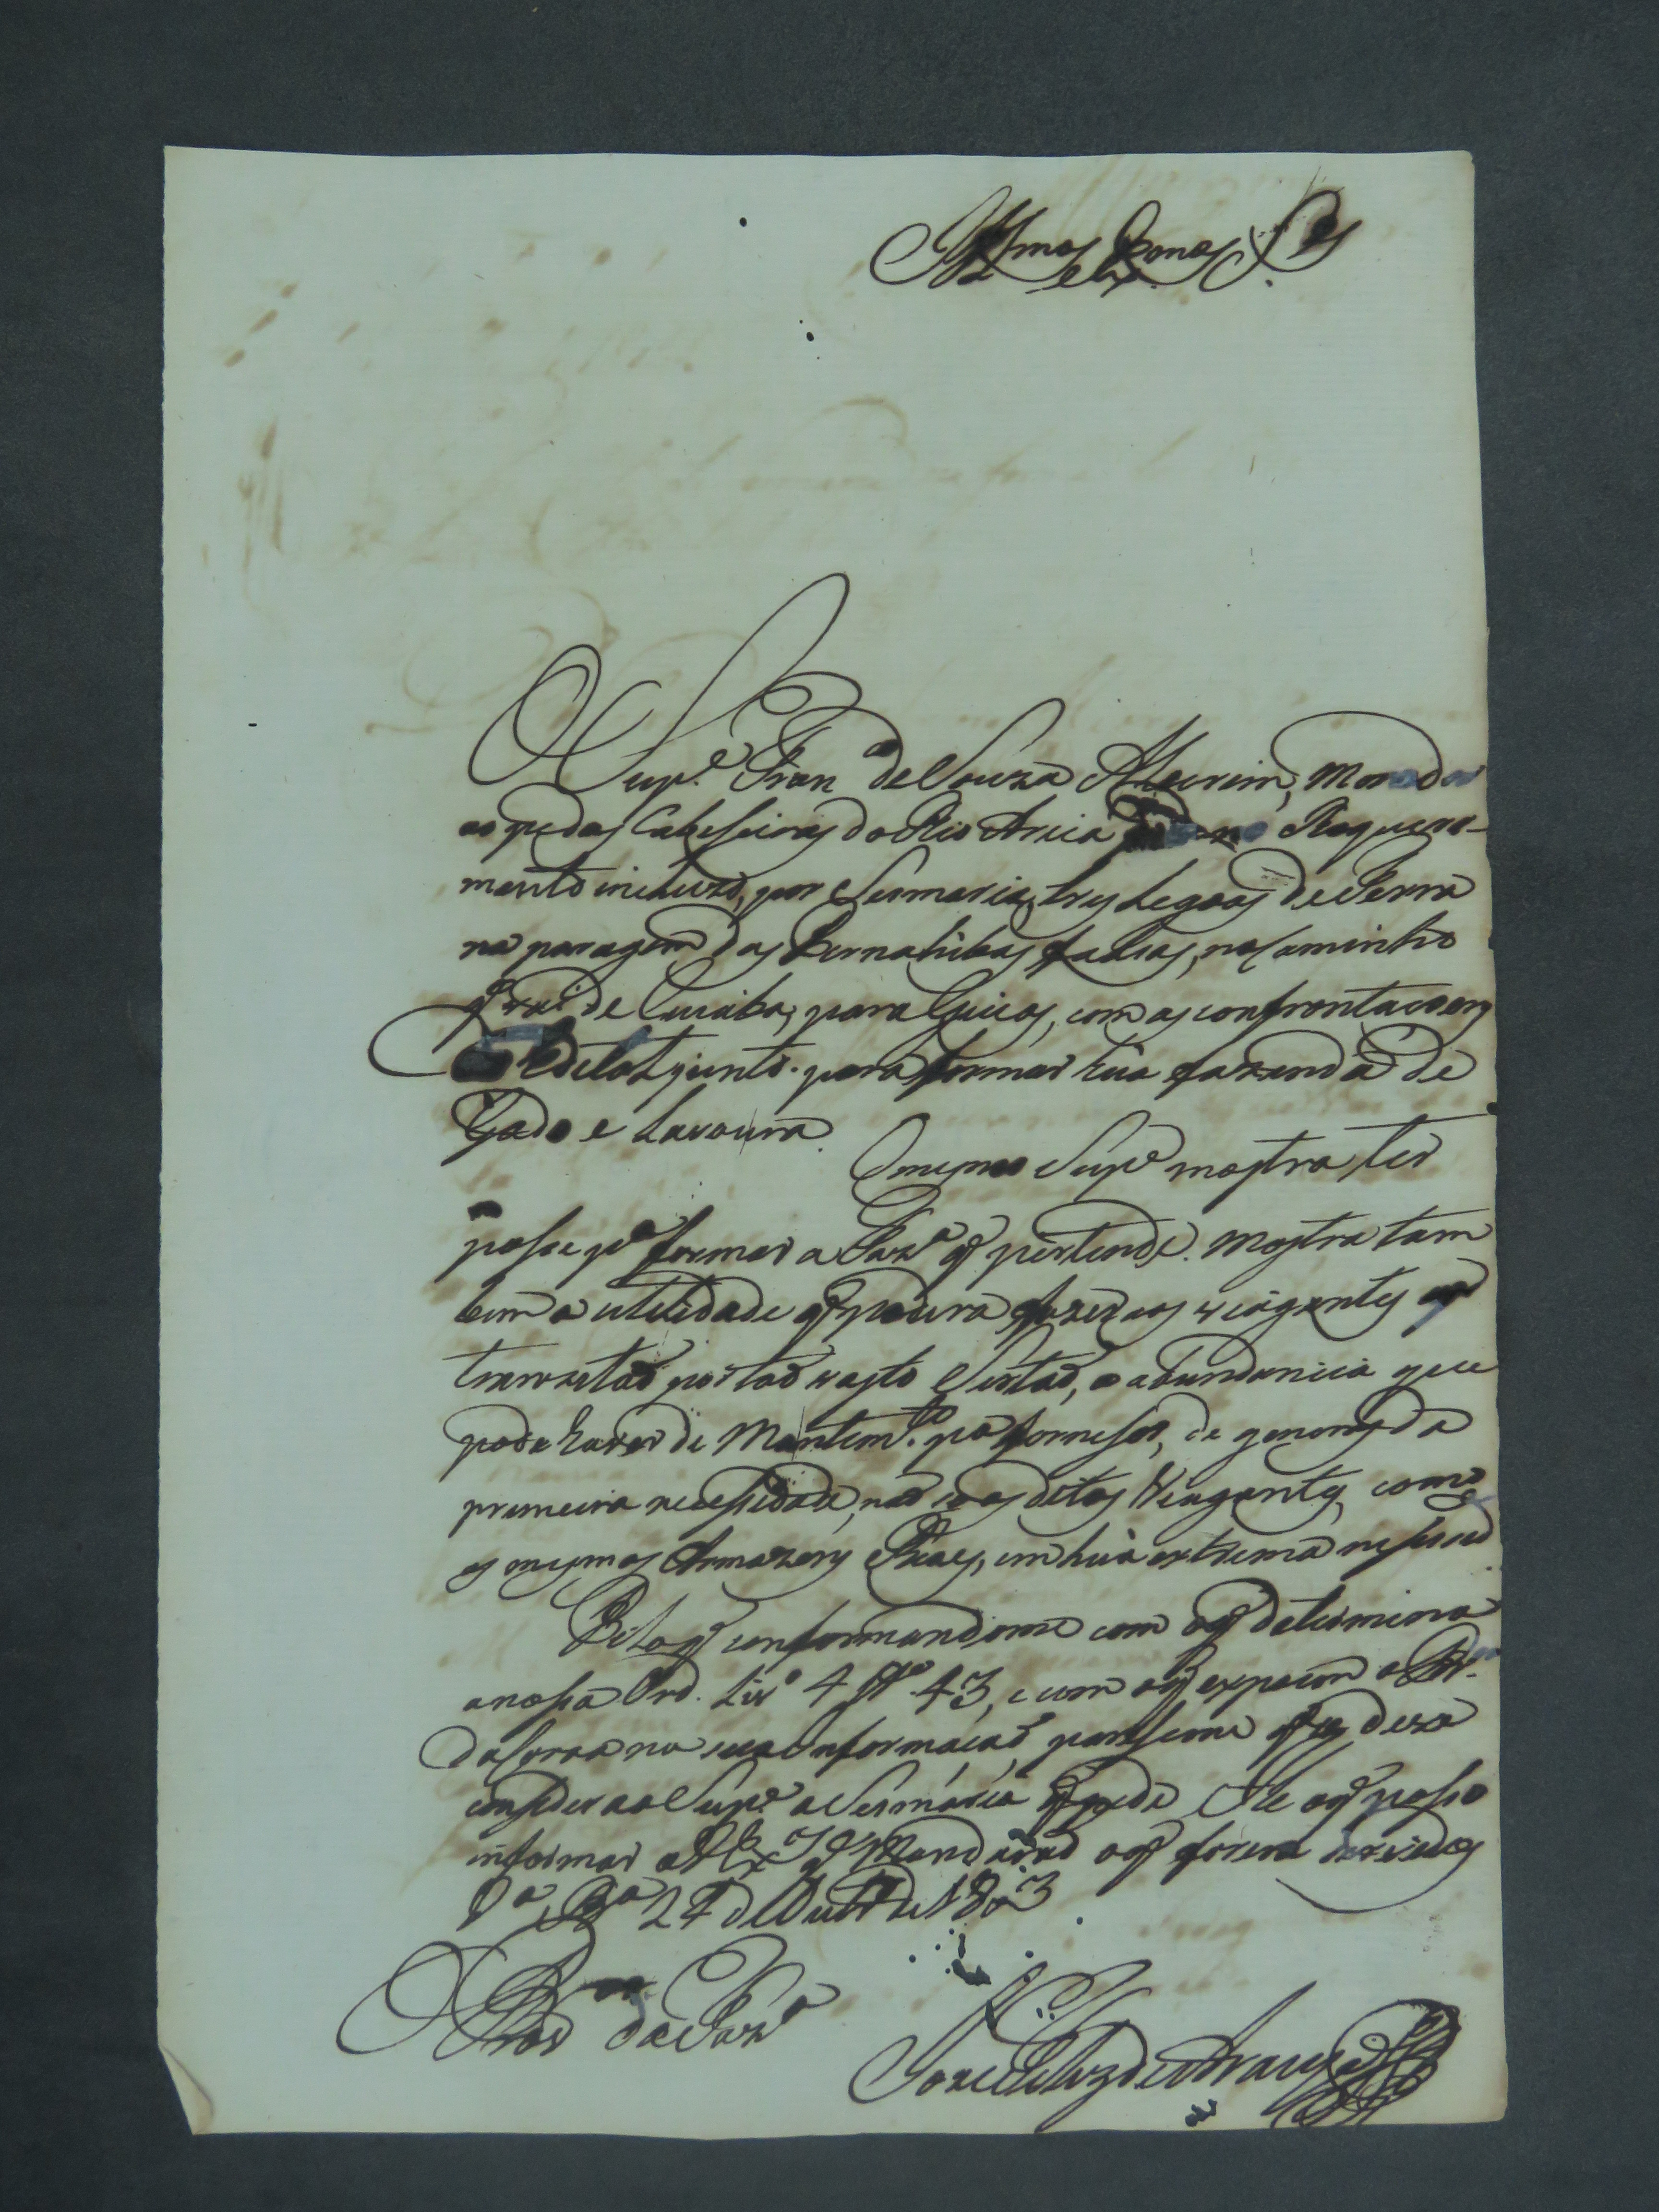 Illmos e Exmos Snres
O Supe. Franco de Souza Alecrim, Morador
ao pe das Cabeseiras do Rio Aricá no Requeri-
mento incluzo, por Sesmaria, tres Legoas de Terra
na paragem das Parnahibas falcas, no Caminho
q vai de Cuiabá para Goias, com as confrontacoens
junto para formar hũa fazenda de
Gado e Lavoura.
O mesmo Supe mostra ter
posse pa formar a Fazda q pertende. Mostra tam
bem a utilidade q podera fazer aos viagantes q
tranzitaõ por taõ vasto Sertaõ, e abundancia que
pode haver de Mantimto. pa forneser, de generos da
primeira necessidade, naõ so os ditos Viagantes, como
os mesmos Armazens Reaes, em hũa extrema nesesid
Pelo q conformandome com o q determina
a nossa Ord. Livo 4 tto 43, e com o q expoem o Pr.
da Coroa na sua informaçaõ, paresseme q se deva
conseder ao Supe. a Sesmaria q pede. He o q posso
informar a VExas q Mandaraõ o q forem servidos
Va. Ba 24 de Outbro de 1803
O Provor da Fazda
Joze da Silva de Araujo